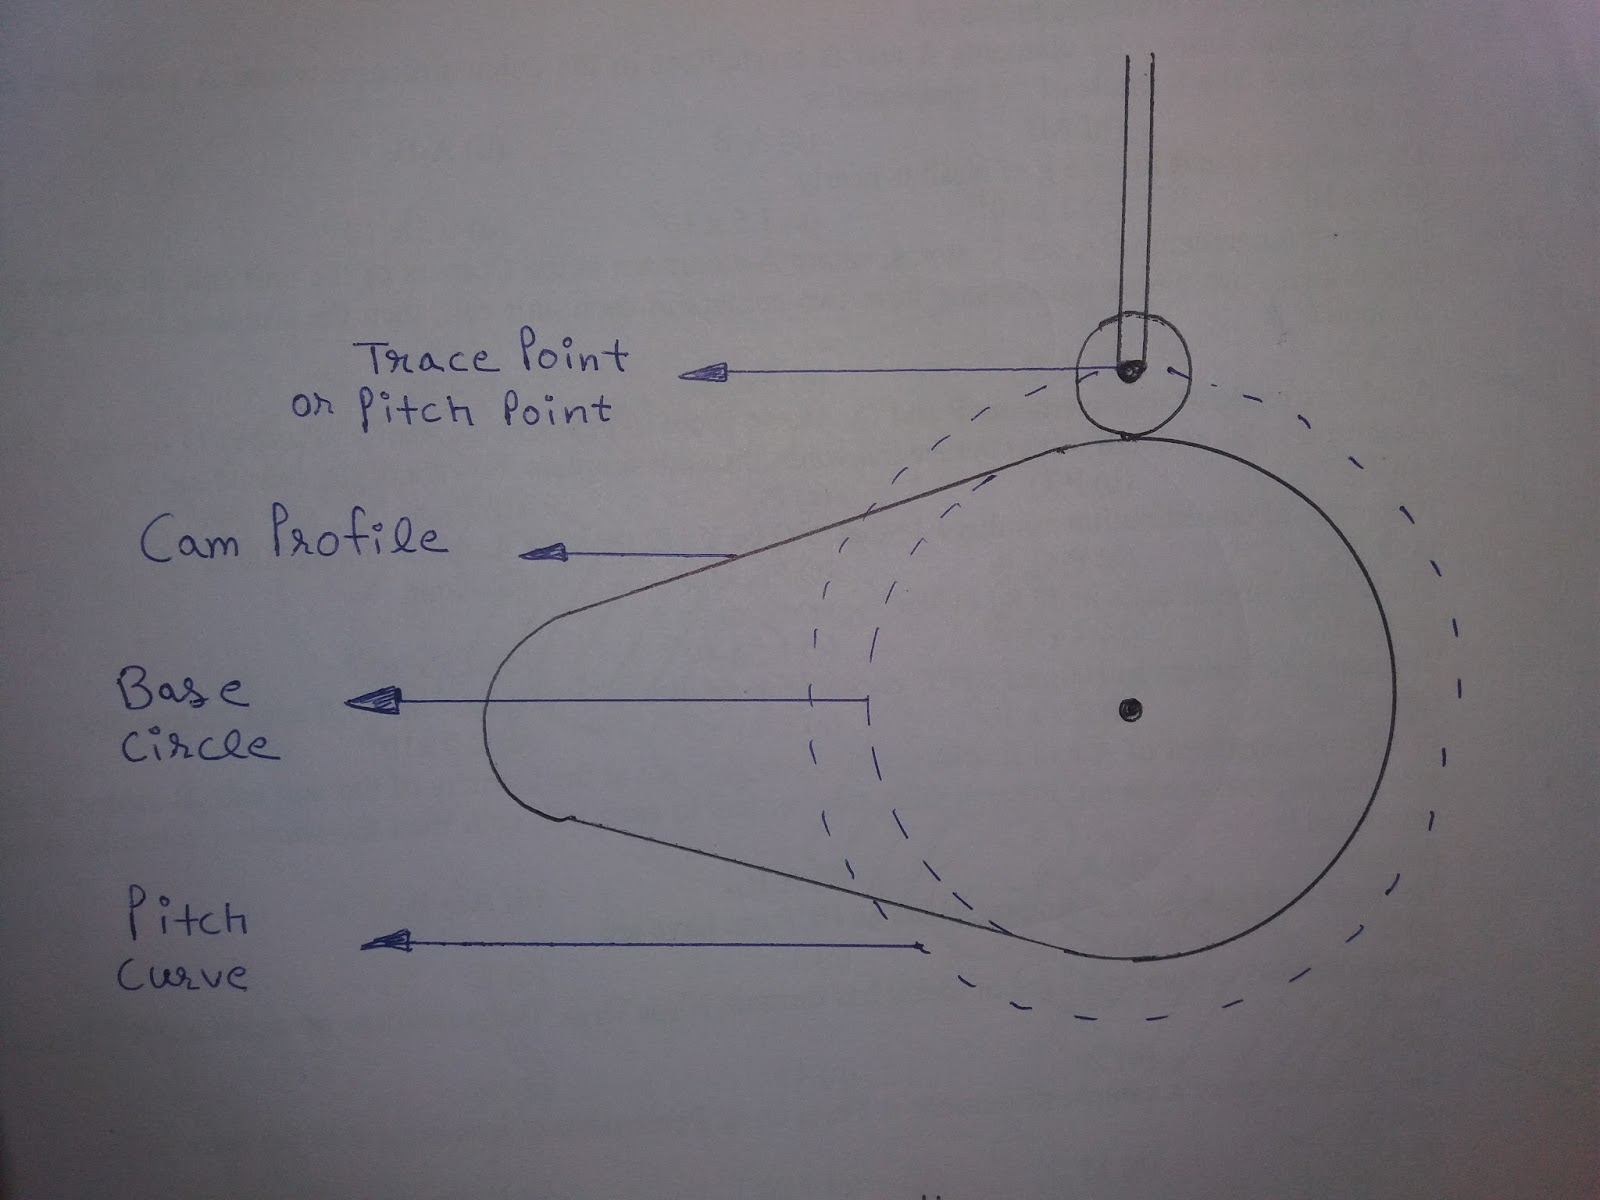 Trace Point
or Pitch Point
Cam Profile
Base
Circle
Pitch
Curve